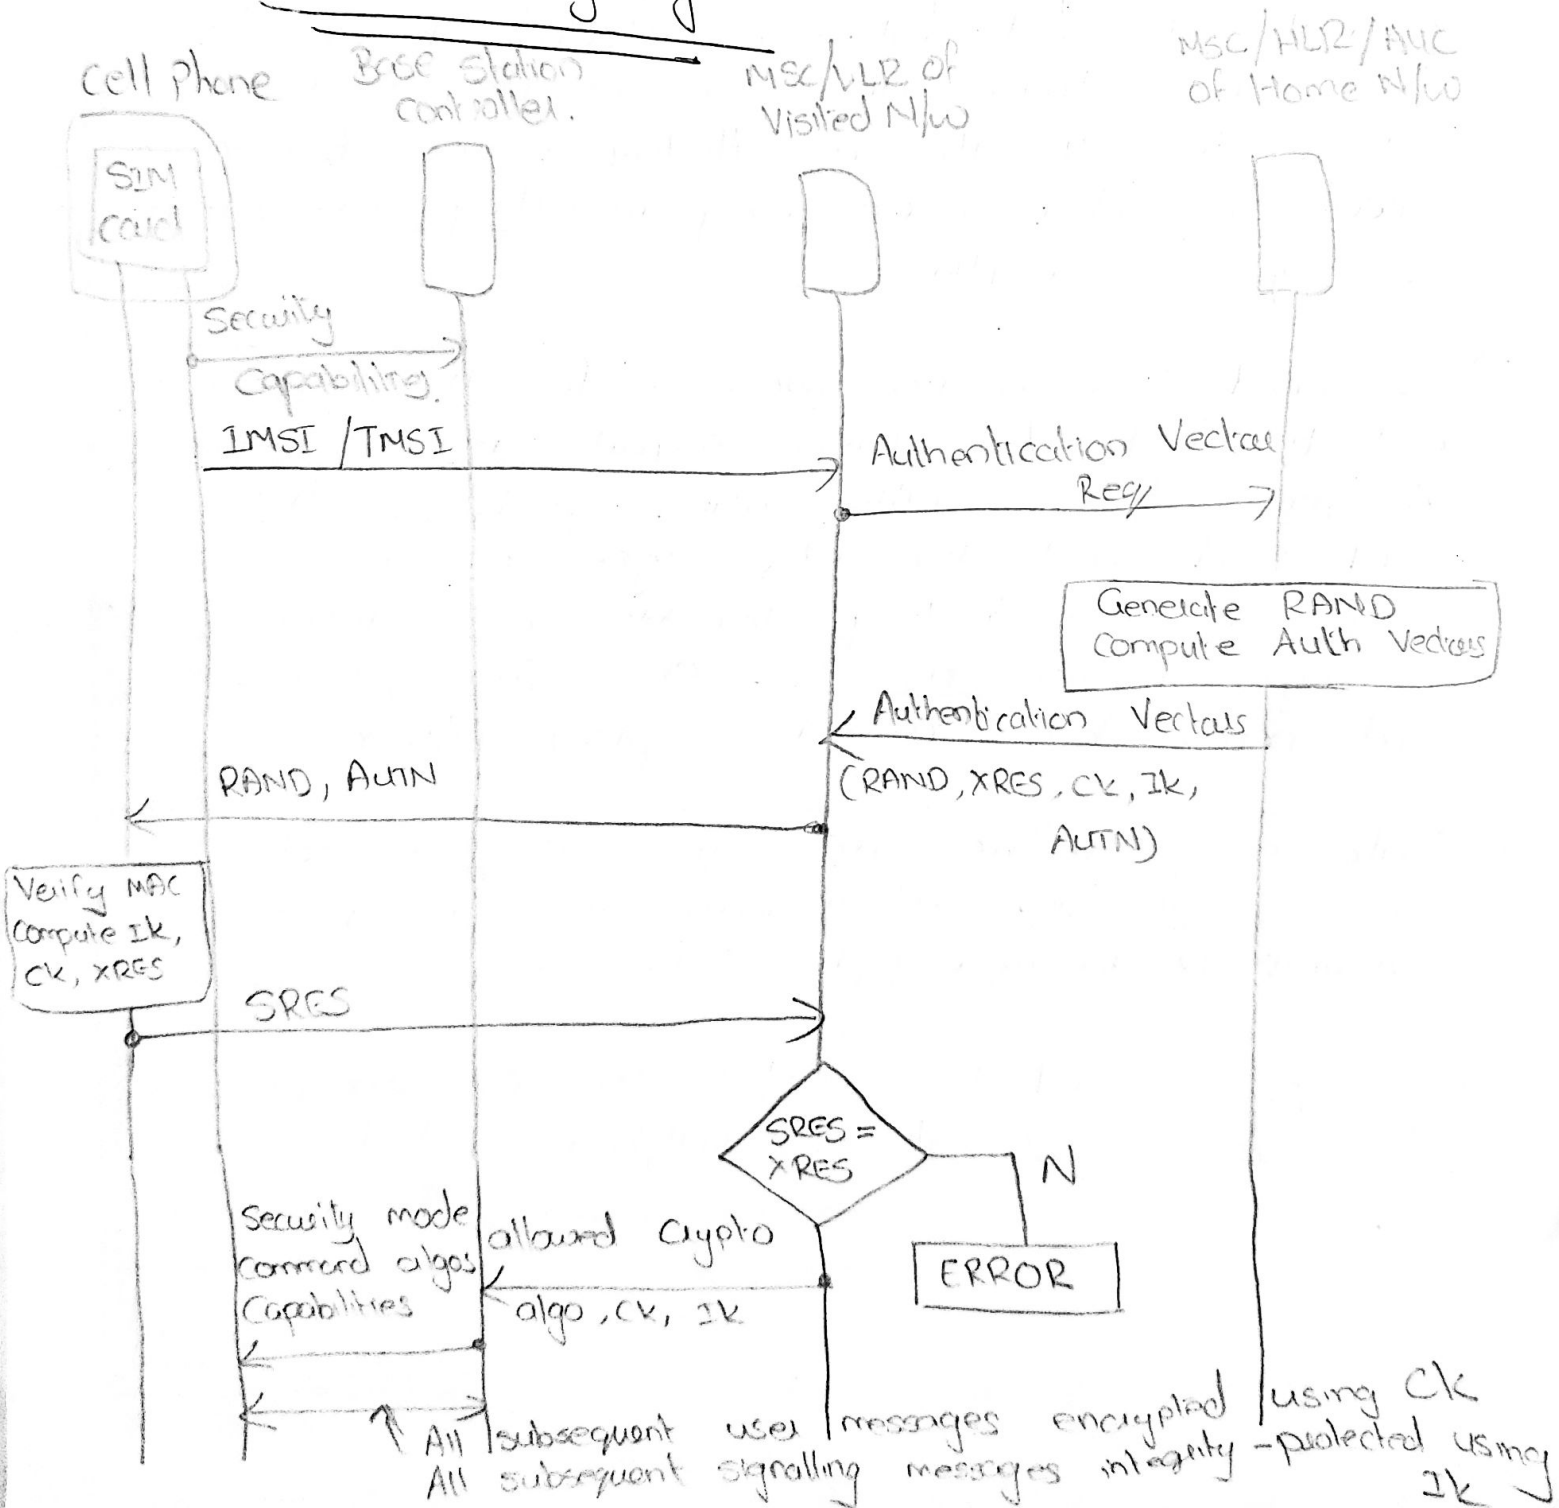 Cell Phone
Base Station
Controller.
MSC/VLR of
Visited N/W
MSC/HLR/AUC
of Home N/W
SIM
card
Security
Capabilities.
IMSI /TMSI
Authentication Vector
Req
Generate RAND
Compute Auth Vectors
Authentication Vectors
(RAND, XRES, CK, IK,
AUTN)
RAND, AUTN
Verify MAC
Compute IK,
CK, XRES
SRES
SRES =
XRES
N
ERROR
allowed Crypto
algo, CK, IK
Security mode
Command algos
Capabilities
All subsequent user messages encrypted using CK
All subsequent signalling messages integrity-protected using
IK